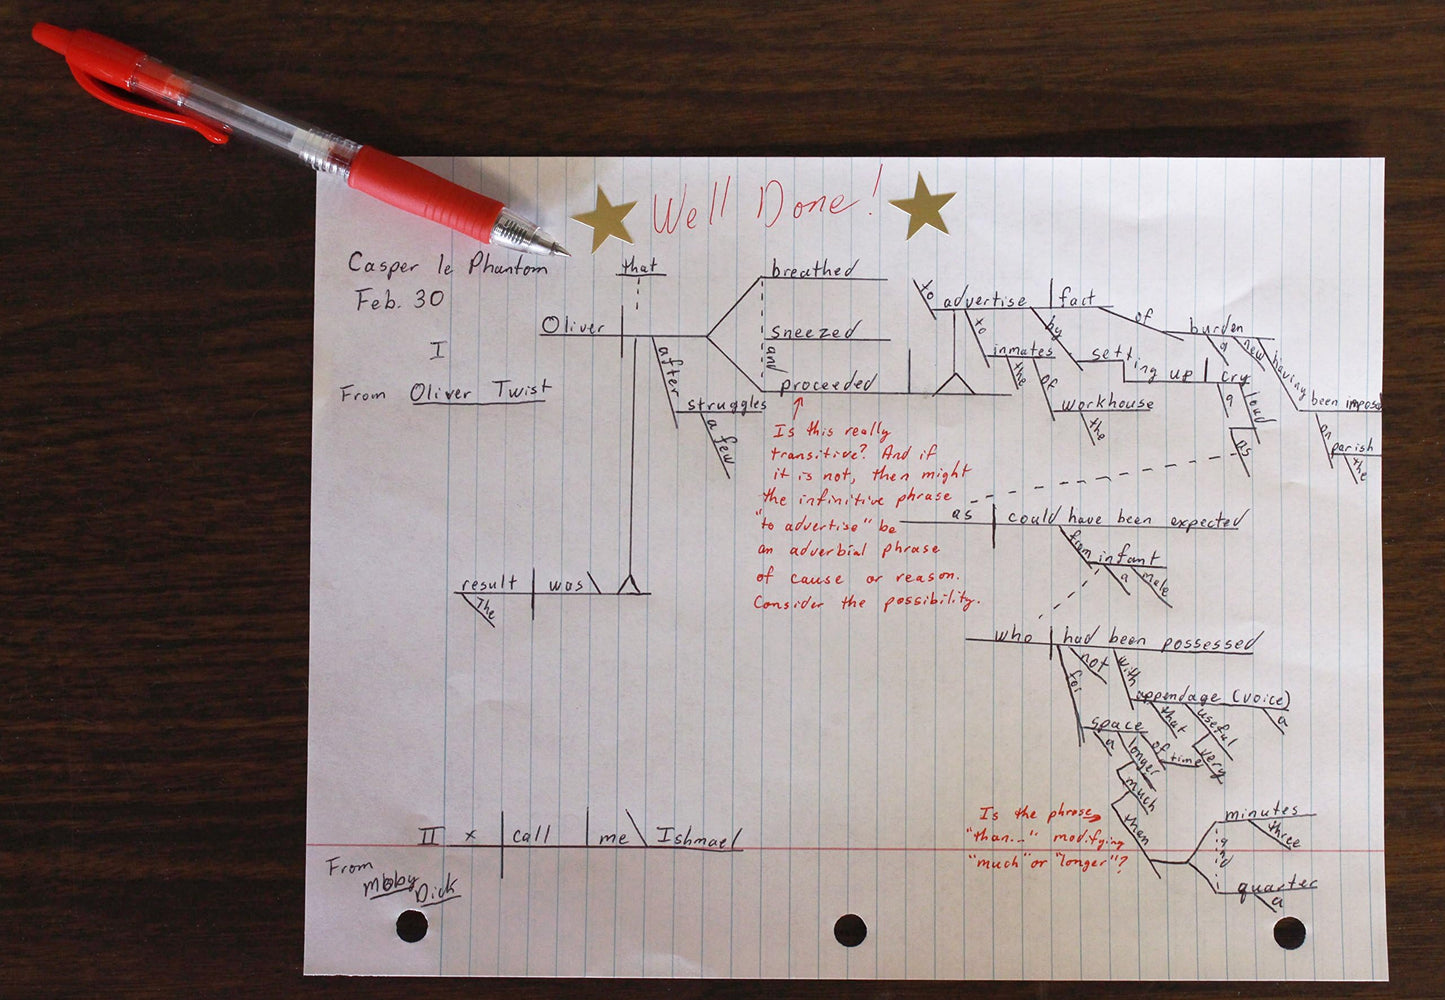 Well Done!
Casper le Phantom
Feb. 30
I
From Oliver Twist
that
Oliver
breathed
sneezed
and
proceeded
after
struggles
a few
to
advertise
fact
of
burden
a
new
having
been impose
on
parish
the
to
inmates
the
of
workhouse
the
by
setting up
cry
a
loud
as
Is this really
transitive? And if
it is not, then might
the infinitive phrase
"to advertise" be
an adverbial phrase
of cause or reason.
Consider the possibility.
as
could have been expected
from
infant
a
male
result
was
The
who
had been possessed
not
with
appendage (voice)
that
useful
a
very
for
space
a
longer
of
time
much
than
minutes
three
and
quarter
a
Is the phrase
"than..." modifying
"much" or "longer"?
II
x
call
me
Ishmael
From
Mobby
Dick